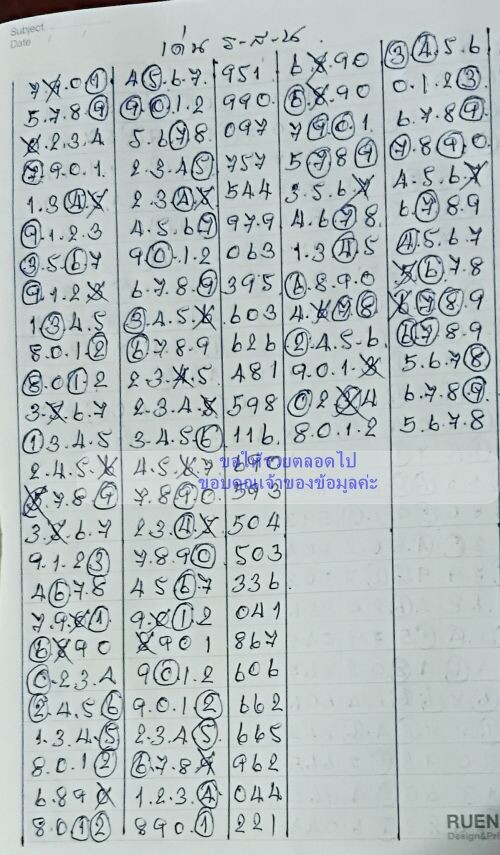 Subject
Date / /
เด่น ร-ส-น
7.8.0.1 4.5.6.7. 951 6.8.90 3.4.5.6
5.7.8.9 9.0.1.2 990. 6.8.90 0.1.2.3
2.3.4 5.6.7.8. 097 7901. 6.7.8.9
7.9.0.1. 2.3.4.5 757 5789 7.8.9.0
1.3.4.5 2.3.4.5 544 3.5.6.7 4.5.6.7
9.1.2.3 4.5.6.7 979. 4.6.7.8 6.7.8.9
3.5.6.7 9.0.1.2 063 1.3.4.5 4.5.6.7
9.1.2.3 6.7.8.9 395 6.8.9.0 5.6.7.8
1.3.4.5 3.4.5.6 603 4.6.7.8 6.7.8.9
8.0.1.2 6.7.8.9 626 2.4.5.6 6.7.8.9
8.0.1.2 2.3.4.5 481 9.0.1.3 5.6.7.8
3.5.6.7 2.3.4.5 598 0.2.3.4 6.7.8.9
1.3.4.5 3.4.5.6 116. 8.0.1.2 5.6.7.8
2.4.5.6 4.5.6.7 690
ขอให้รวยตลอดไป
ขอบคุณเจ้าของข้อมูลค่ะ
6.7.8.9 7.8.9.0 593
3.5.6.7 2.3.4.5 504
9.1.2.3 7.8.9.0 503
4.6.7.8 4.5.6.7 336
7.9.0.1 9.0.1.2 041
6.8.9.0 8.9.0.1 867
0.2.3.4 9.0.1.2 606
2.4.5.6 9.0.1.2 662
1.3.4.5 2.3.4.5 665
8.0.1.2 6.7.8.9 962
6.8.9.0 1.2.3.4 044
8.0.1.2 8.9.0.1 221
RUEN
Design&Pri